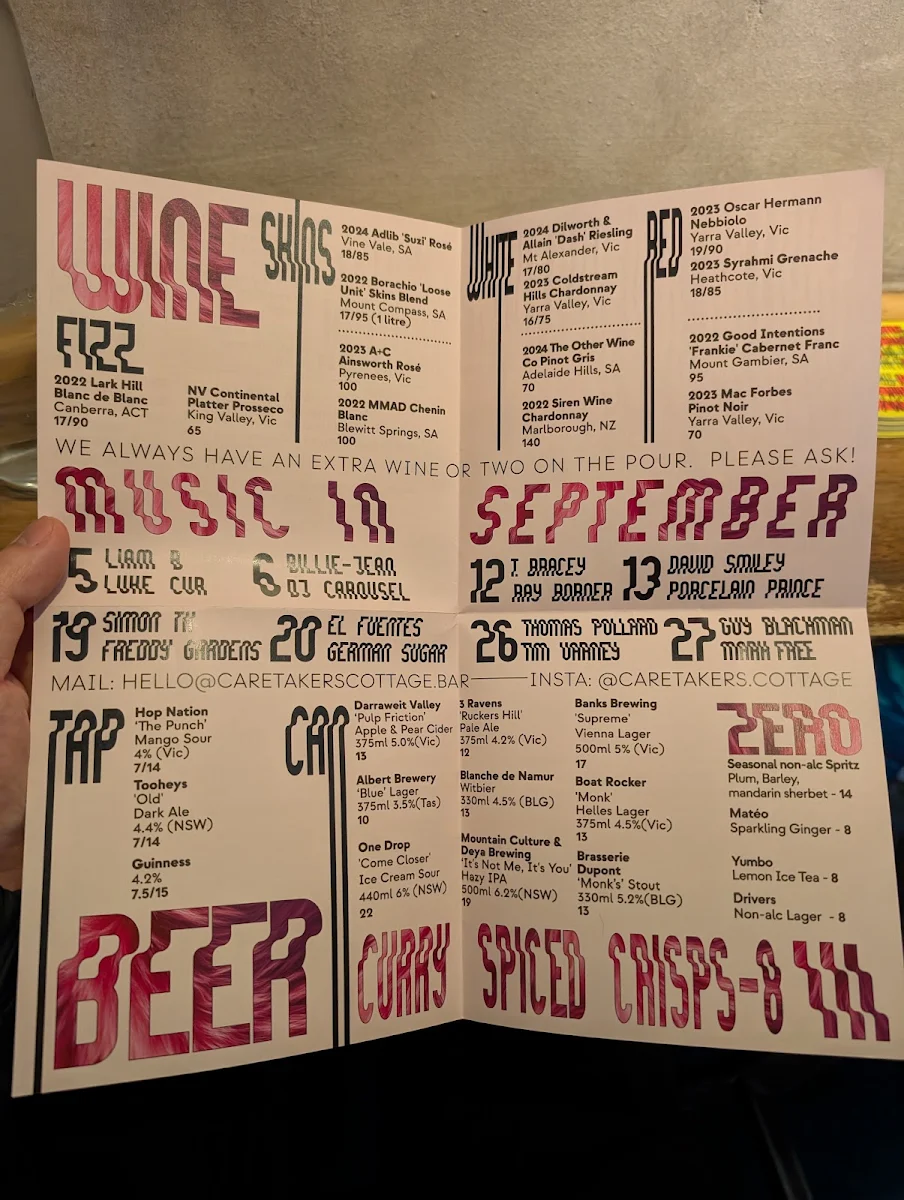 WINE
FIZZ
2022 Lark Hill
Blanc de Blanc
Canberra, ACT
17/90
NV Continental
Platter Prosseco
King Valley, Vic
65
SKINS
2024 Adlib 'Suzi' Rosé
Vine Vale, SA
18/85
2022 Borachio 'Loose
Unit' Skins Blend
Mount Compass, SA
17/95 (1 litre)
2023 A+C
Ainsworth Rosé
Pyrenees, Vic
100
2022 MMAD Chenin
Blanc
Blewitt Springs, SA
100
WHITE
2024 Dilworth &
Allain 'Dash' Riesling
Mt Alexander, Vic
17/80
2023 Coldstream
Hills Chardonnay
Yarra Valley, Vic
16/75
2024 The Other Wine
Co Pinot Gris
Adelaide Hills, SA
70
2022 Siren Wine
Chardonnay
Marlborough, NZ
140
RED
2023 Oscar Hermann
Nebbiolo
Yarra Valley, Vic
19/90
2023 Syrahmi Grenache
Heathcote, Vic
18/85
2022 Good Intentions
'Frankie' Cabernet Franc
Mount Gambier, SA
95
2023 Mac Forbes
Pinot Noir
Yarra Valley, Vic
70
WE ALWAYS HAVE AN EXTRA WINE OR TWO ON THE POUR. PLEASE ASK!
MUSIC IN SEPTEMBER
5 LIAM B
LUKE CUR
6 BILLIE-JEAN
DJ CAROUSEL
12 T. BRACEY
RAY BORNER
13 DAVID SMILEY
PORCELAIN PRINCE
19 SIMON TK
FREDDY GARDENS
20 EL FUENTES
GERMAN SUGAR
26 THOMAS POLLARD
TIM VARNEY
27 GUY BLACKMAN
MARK FREE
MAIL: HELLO@CARETAKERSCOTTAGE.BAR
INSTA: @CARETAKERS.COTTAGE
TAP
Hop Nation
'The Punch'
Mango Sour
4% (Vic)
7/14
Tooheys
'Old'
Dark Ale
4.4% (NSW)
7/14
Guinness
4.2%
7.5/15
BEER
CAN
Darraweit Valley
'Pulp Friction'
Apple & Pear Cider
375ml 5.0%(Vic)
13
Albert Brewery
'Blue' Lager
375ml 3.5%(Tas)
10
One Drop
'Come Closer'
Ice Cream Sour
440ml 6% (NSW)
22
3 Ravens
'Ruckers Hill'
Pale Ale
375ml 4.2% (Vic)
12
Blanche de Namur
Witbier
330ml 4.5% (BLG)
13
Mountain Culture &
Deya Brewing
'It's Not Me, It's You'
Hazy IPA
500ml 6.2%(NSW)
19
Banks Brewing
'Supreme'
Vienna Lager
500ml 5% (Vic)
17
Boat Rocker
'Monk'
Helles Lager
375ml 4.5%(Vic)
13
Brasserie
Dupont
'Monk's' Stout
330ml 5.2%(BLG)
13
ZERO
Seasonal non-alc Spritz
Plum, Barley,
mandarin sherbet - 14
Matéo
Sparkling Ginger - 8
Yumbo
Lemon Ice Tea - 8
Drivers
Non-alc Lager - 8
CURRY SPICED CRISPS-8